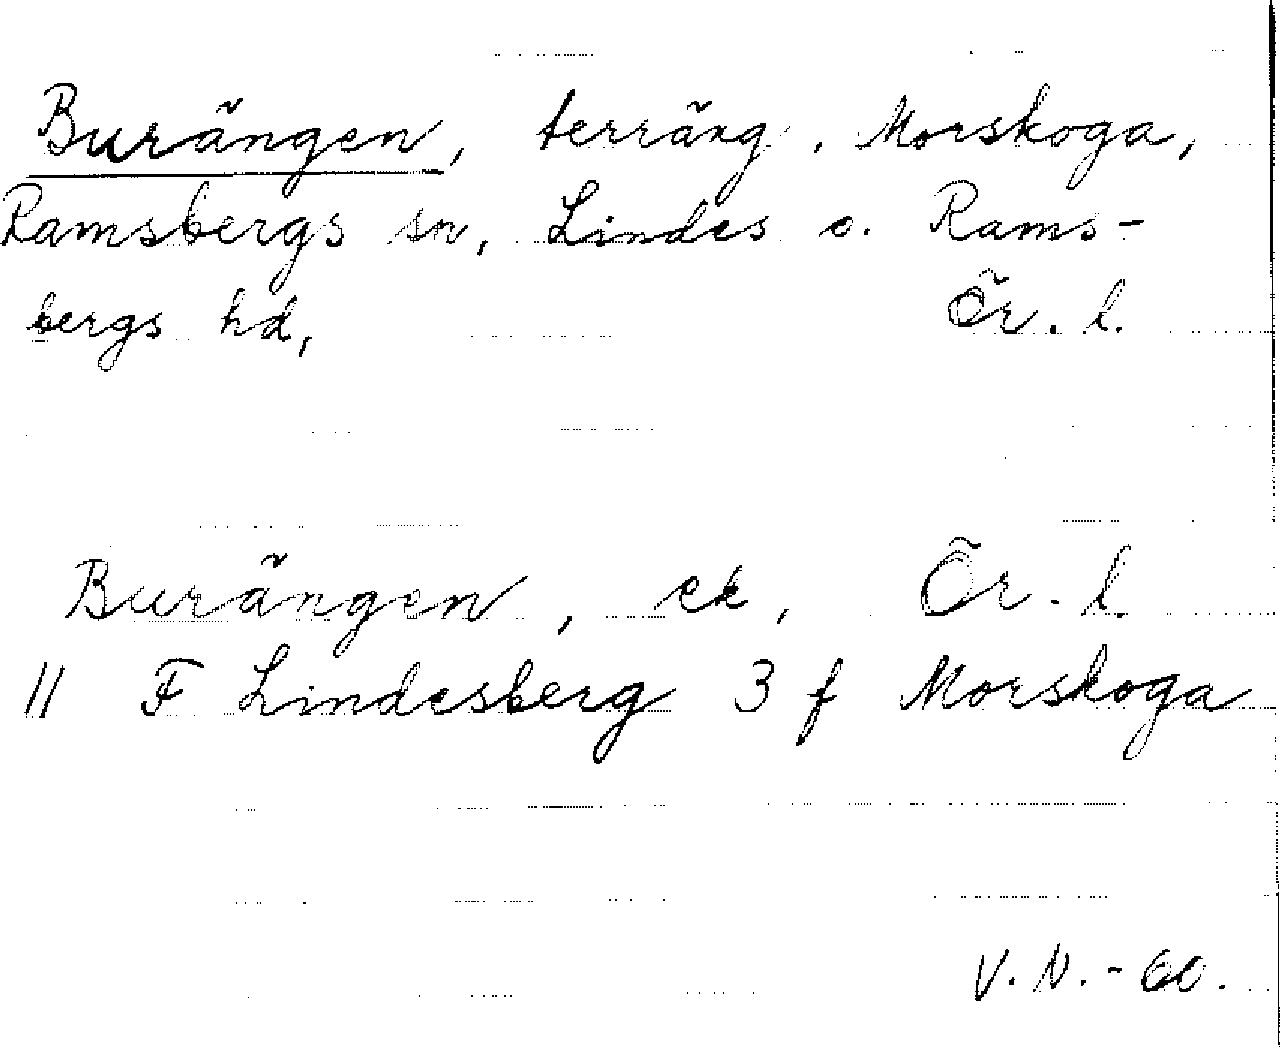 Burängen, terräng, Morskoga,
Ramsbergs sn, Lindes o. Rams-
bergs hd, Ör. l.
Burängen, ek, Ör. l.
11 F Lindesberg 3 f Morskoga
V. N. - 60.